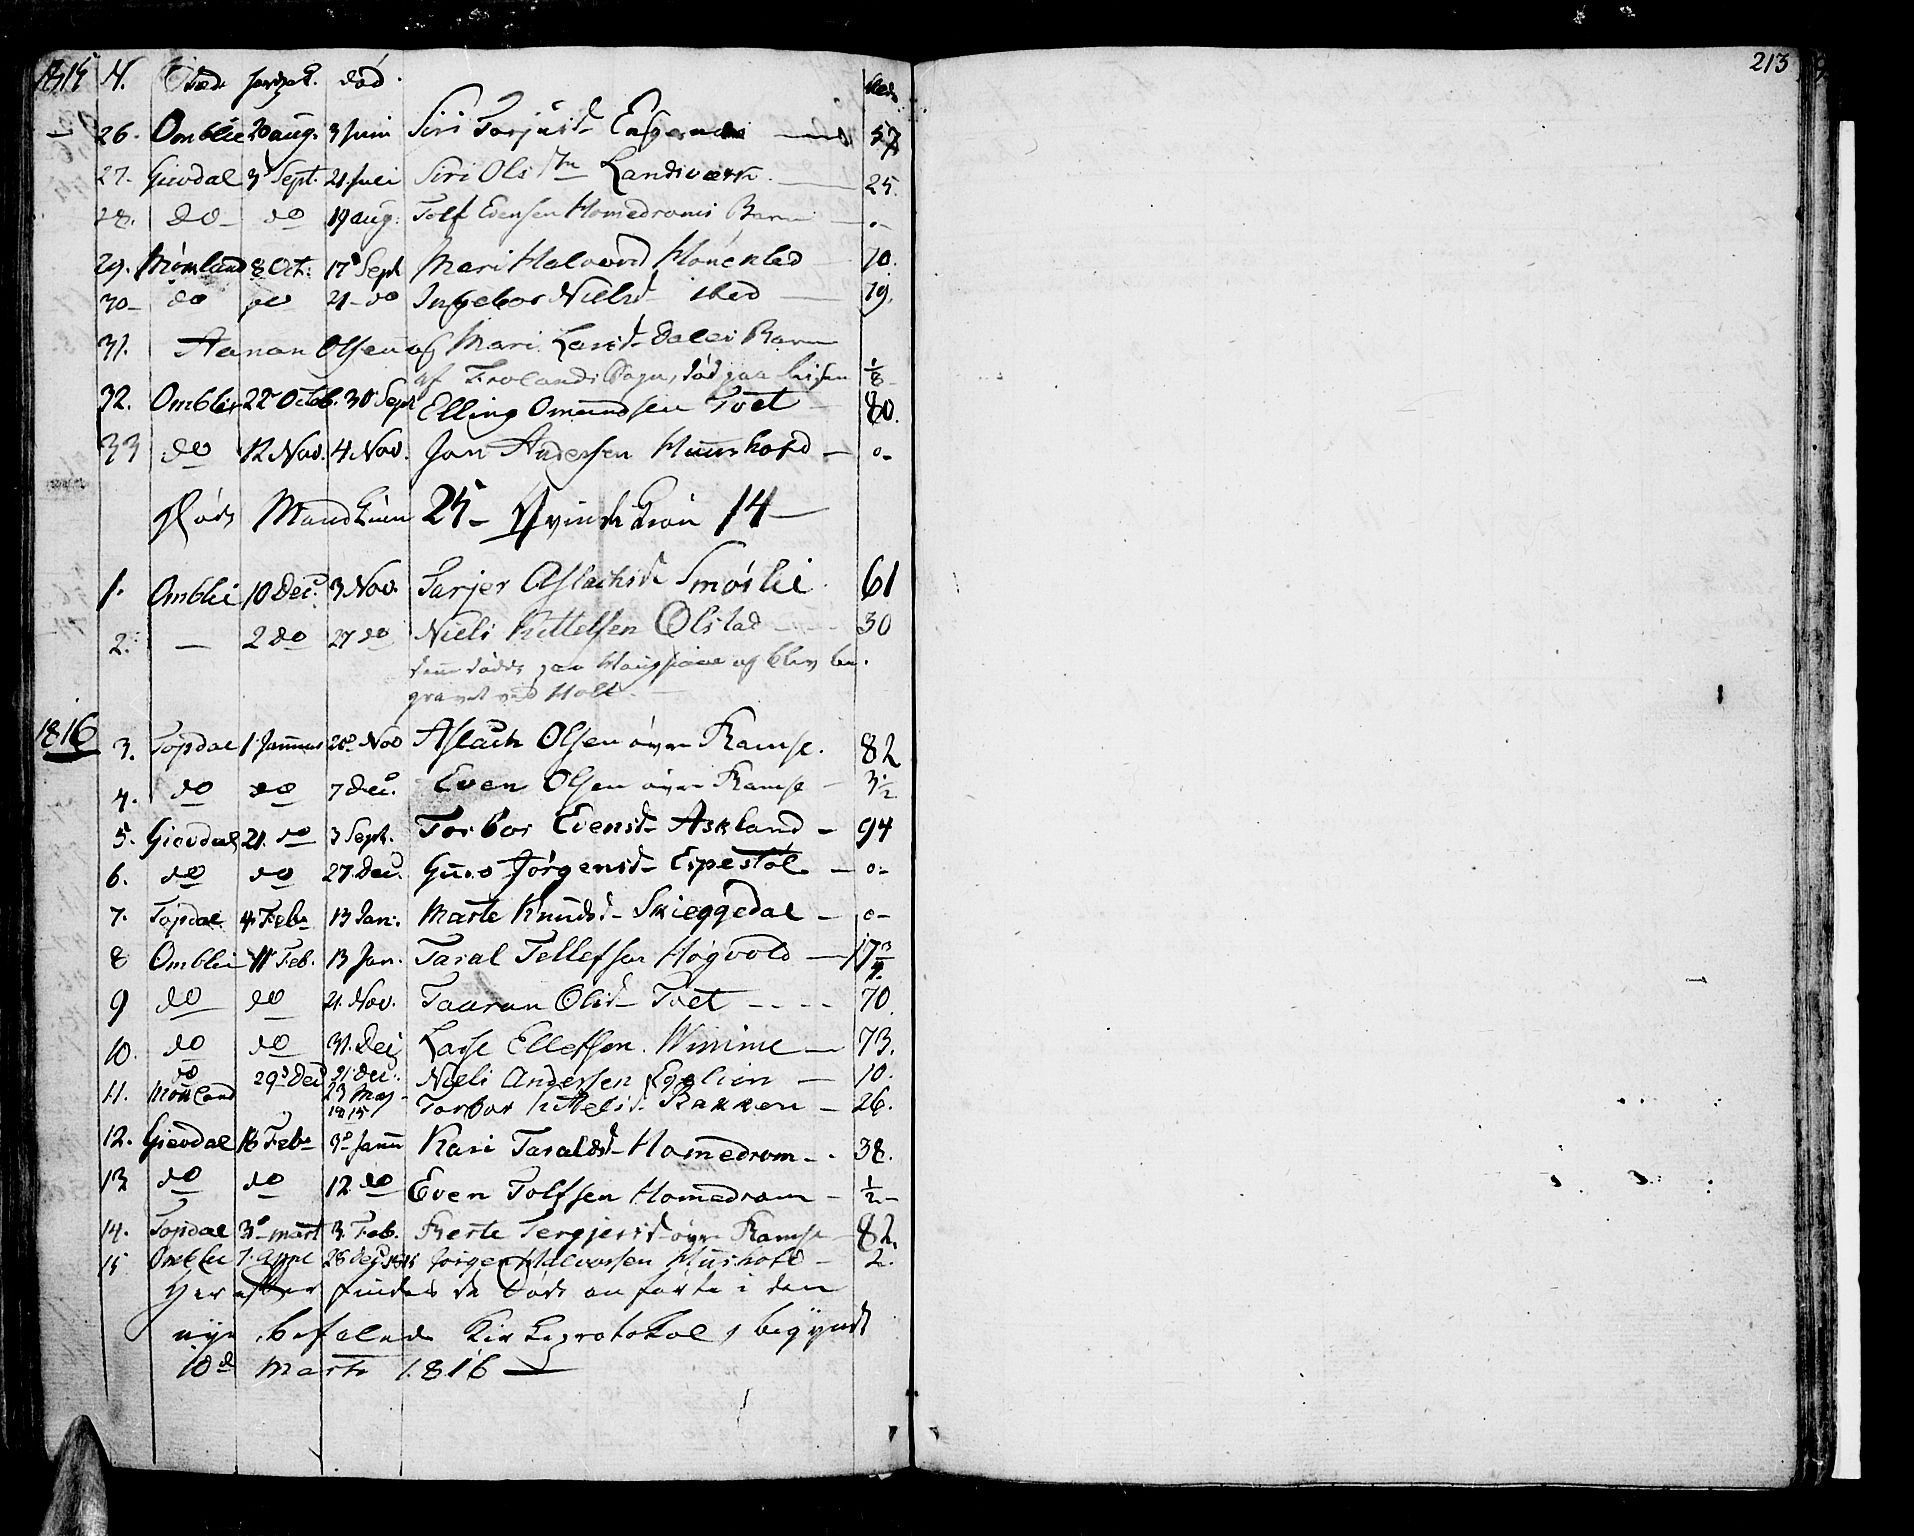 213
1815 N. Sted jordfæst. død. Aar
26. Omblie 20 aug. 3 Juni Siri Torjusd 57
27. Giøvdal 3 Sept. 21. Juli Siri Olsdtr Landsværk. 25.
28. do do 19 aug. Tolf Evensen Homedroms Barn 0-
29. Mønland 8 Oct: 17 Sept Mari Halvord 70.
30- do do 21- do Ingebor Nielsd ibed 19.
31. Aanon Olsen og Mari Larsd Dales Barn
af Frolands Sogn, død paa Reisen 1/8
32. Omblie 22 Octob. 30 Sept Elling Omundsen Tvet 80.
33 do 12 Nov. 4 Nov. Jon Andersen Huushofd 0-
Døde Mandkiøn 25- Qvindekiøn 14-
1. Omblie 10 Dec. 3 Nov. Tarjer Aslachsd Smøslie 61
2. - 2 do 27 do Niels Kittelsen Ølstad 30
denne døde paa og blev be-
gravet ved Holt.
1816
3. Topdal 1 Januar 28 Nov Aslach Olsen øvre Ramse. 82
4. do do 7 Dec. Even Olsen øvre Ramse 3 1/2
5. Giøvdal 21. do 3 Sept. Torbor Evensd Askland 94
6. do do 27. Dec. Guro Jørgensd Espestøl 0-
7. Topdal 4 Feb. 13 Jan: Marte Knudsd Skieggedal 0-
8 Omblie 11 Feb. 13 Jan. Taral Tellefsen Høgvold 17 3/4.
9 do do 21. Nov. Taaran Olsd Tvet 70.
10. do do 31. Dec Lasse Ellefsen. Wimme 73.
do 29 Dec 21. Dec. Niels Andersen Egelien 10.
11. Mønland 23 Maj 1815 Torbor Kittelsd. Bakken 26.
12. Giøvdal 18 Feb. 3 Janu Kari Taraldsd Homedrom 38.
13 do do 12. do Even Tolfsen Homedrom 1/2
14. Topdal 3 mart 3. Feb. Berte Tergjersd øvre Ramse 82.
15 Omblie 7. April 28 Dec 1815 Jørgen Halvorsen Huushofd 2.
Herefter findes de Døde anførte i den
nye befalede Kirkeprotokol, begyndt
10de Marti 1816